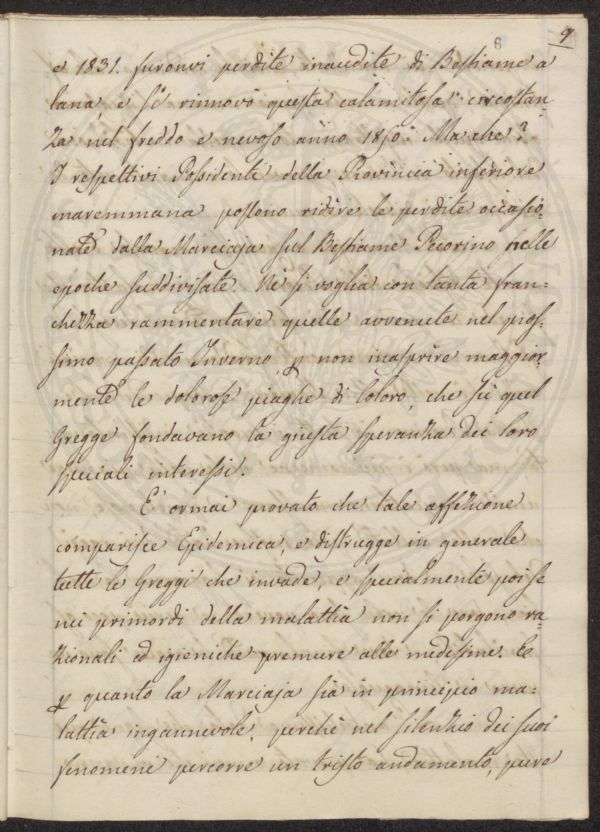 8 9
e 1831. furonvi perdite inaudite di Bestiame a
lana, e si rinnovò questa calamitosa circostan-
za nel freddo e nevoso anno 1850. Ma che?
I respettivi Possidenti della Provincia inferiore
maremmana possono ridire le perdite occasio
nate dalla Marciaja sul Bestiame Pecorino nelle
epoche suddivisate. Nè si voglia con tanta fran=
chezza rammentare quelle avvenute nel pros=
simo passato Inverno, p non inasprire maggior
mente le dolorose piaghe di coloro, che sù quel
Gregge fondavano la giusta speranza dei loro
speciali interessi.
E' ormai provato che tale affezione
comparisce Epidemica, e distrugge in generale
tutte le Greggi che invade, e specialmente poi se
nei primordi della malattia non si porgono ra=
zionali ed igieniche premure alle medesime. E
p quanto la Marciaja sia in principio ma=
lattia ingannevole, perchè nel silenzio dei suoi
fenomeni percorre un tristo andamento, pure